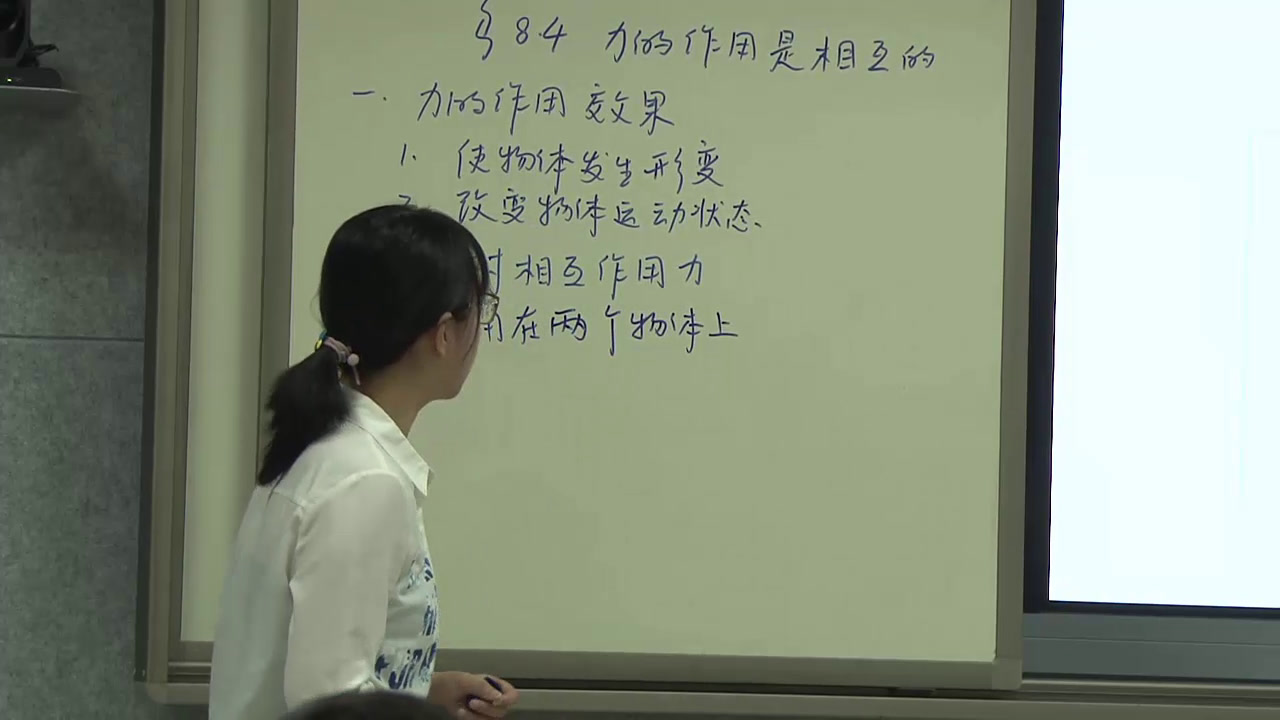 § 8.4 力的作用是相互的
一. 力的作用效果
1. 使物体发生形变
2. 改变物体运动状态.
对相互作用力
用在两个物体上